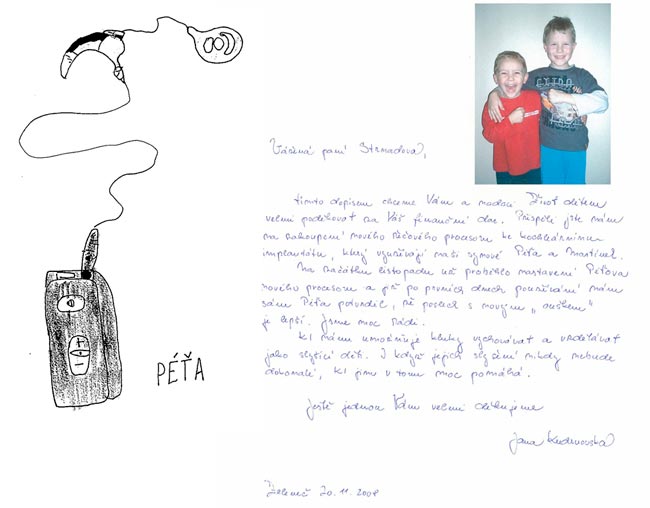 PÉŤA
Vážená paní Strnadová,
tímto dopisem chceme Vám a nadaci Život dětem
velmi poděkovat za Váš finanční dar. Přispěli jste nám
na zakoupení nového řečového procesoru ke kochleárnímu
implantátu, který využívají naši synové Péťa a Martínek.
Na začátku listopadu už proběhlo nastavení Péťova
nového procesoru a již po prvních dnech používání nám
sám Péťa potvrdil, že poslech s novým "ouškem"
je lepší. Jsme moc rádi.
KI nám umožňuje kluky vychovávat a vzdělávat
jako slyšící děti. I když jejich slyšení nikdy nebude
dokonalé, KI jim v tom moc pomáhá.
Ještě jednou Vám velmi děkujeme
Jana
Zeleneč 20.11.2008